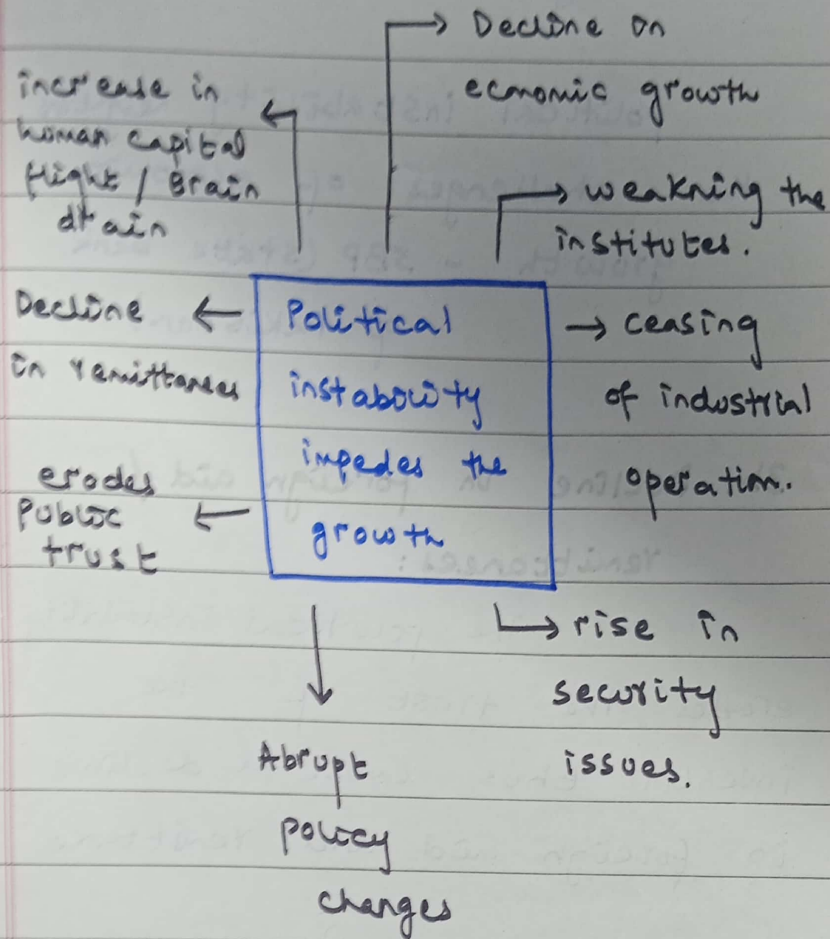 Decline on
economic growth
increase in
human capital
flight / Brain
drain
weakning the
institutes.
Decline
in remittances
Political
instability
impedes the
growth
ceasing
of industrial
operation.
erodes
public
trust
rise in
security
issues.
Abrupt
policy
changes